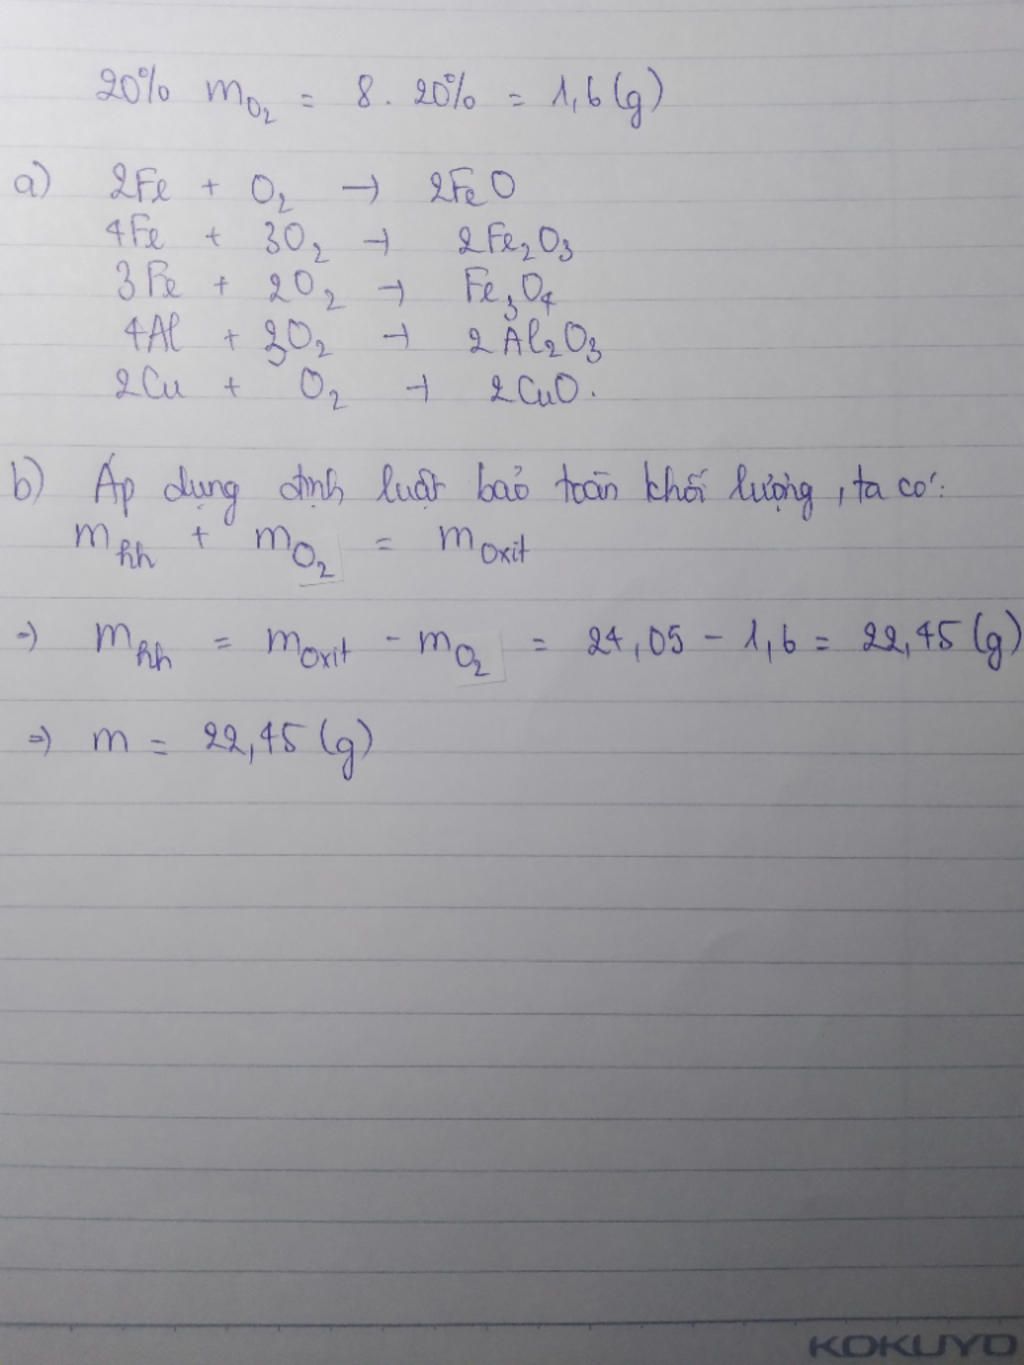 20% mO₂ = 8 . 20% = 1,6 (g)
a) 2Fe + O₂ → 2FeO
4Fe + 3O₂ → 2Fe₂O₃
3Fe + 2O₂ → Fe₃O₄
4Al + 3O₂ → 2Al₂O₃
2Cu + O₂ → 2CuO.
b) Áp dụng định luật bảo toàn khối lượng, ta có:
mhh + mO₂ = moxit
⇒ mhh = moxit - mO₂ = 24,05 - 1,6 = 22,45 (g)
⇒ m = 22,45 (g)
KOKUYO